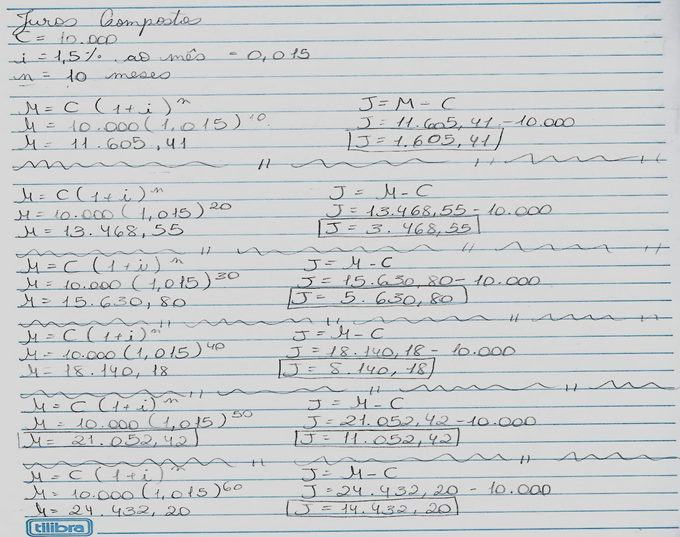 Juros Compostos
C = 10.000
i = 1,5% ao mês = 0,015
n = 10 meses
M = C (1+i)^n J = M - C
M = 10.000 (1,015)^10 J = 11.605,41 - 10.000
M = 11.605,41 J = 1.605,41
M = C (1+i)^n J = M - C
M = 10.000 (1,015)^20 J = 13.468,55 - 10.000
M = 13.468,55 J = 3.468,55
M = C (1+i)^n J = M - C
M = 10.000 (1,015)^30 J = 15.630,80 - 10.000
M = 15.630,80 J = 5.630,80
M = C (1+i)^n J = M - C
M = 10.000 (1,015)^40 J = 18.140,18 - 10.000
M = 18.140,18 J = 8.140,18
M = C (1+i)^n J = M - C
M = 10.000 (1,015)^50 J = 21.052,42 - 10.000
M = 21.052,42 J = 11.052,42
M = C (1+i)^n J = M - C
M = 10.000 (1,015)^60 J = 24.432,20 - 10.000
M = 24.432,20 J = 14.432,20
tilibra